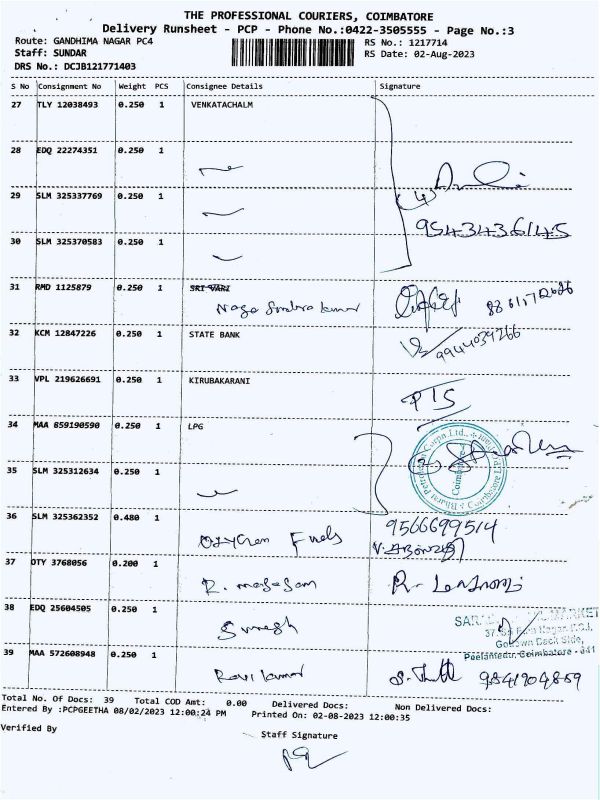 THE PROFESSIONAL COURIERS, COIMBATORE
Delivery Runsheet - PCP - Phone No.:0422-3505555 - Page No.:3
Route: GANDHIMA NAGAR PC4
RS No.: 1217714
Staff: SUNDAR
RS Date: 02-Aug-2023
DRS No.: DCJB121771403
S No Consignment No Weight PCS Consignee Details Signature
27 TLY 12038493 0.250 1 VENKATACHALM
28 EDQ 22274351 0.250 1
29 SLM 325337769 0.250 1
(4)
9543436145
30 SLM 325370583 0.250 1
31 RMD 1125879 0.250 1 SRI VARI
32 KCM 12847226 0.250 1 STATE BANK
9944039266
33 VPL 219626691 0.250 1 KIRUBAKARANI
PTS
34 MAA 859190590 0.250 1 LPG
Bharat Petroleum Corpn Ltd.,
Coimbatore
35 SLM 325312634 0.250 1
36 SLM 325362352 0.480 1
Fuels
9566699514
37 OTY 3768056 0.200 1
R.
R.
38 EDQ 25604505 0.250 1
Suresh
Godown Dock Side,
Peelamedu, Coimbatore - 641
39 MAA 572608948 0.250 1
Ravi kumar
9841904859
Total No. Of Docs: 39 Total COD Amt: 0.00 Delivered Docs: Non Delivered Docs:
Entered By :PCPGEETHA 08/02/2023 12:00:24 PM Printed On: 02-08-2023 12:00:35
Verified By
Staff Signature